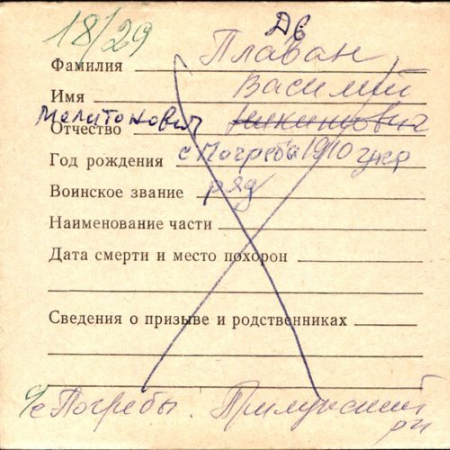 18/29
Дв
Фамилия Плаван
Имя Василий
Мелитонович
Отчество
Год рождения с Погребы 1910
Воинское звание ряд
Наименование части
Дата смерти и место похорон
Сведения о призыве и родственниках
с Погребы. Прилукский
рн